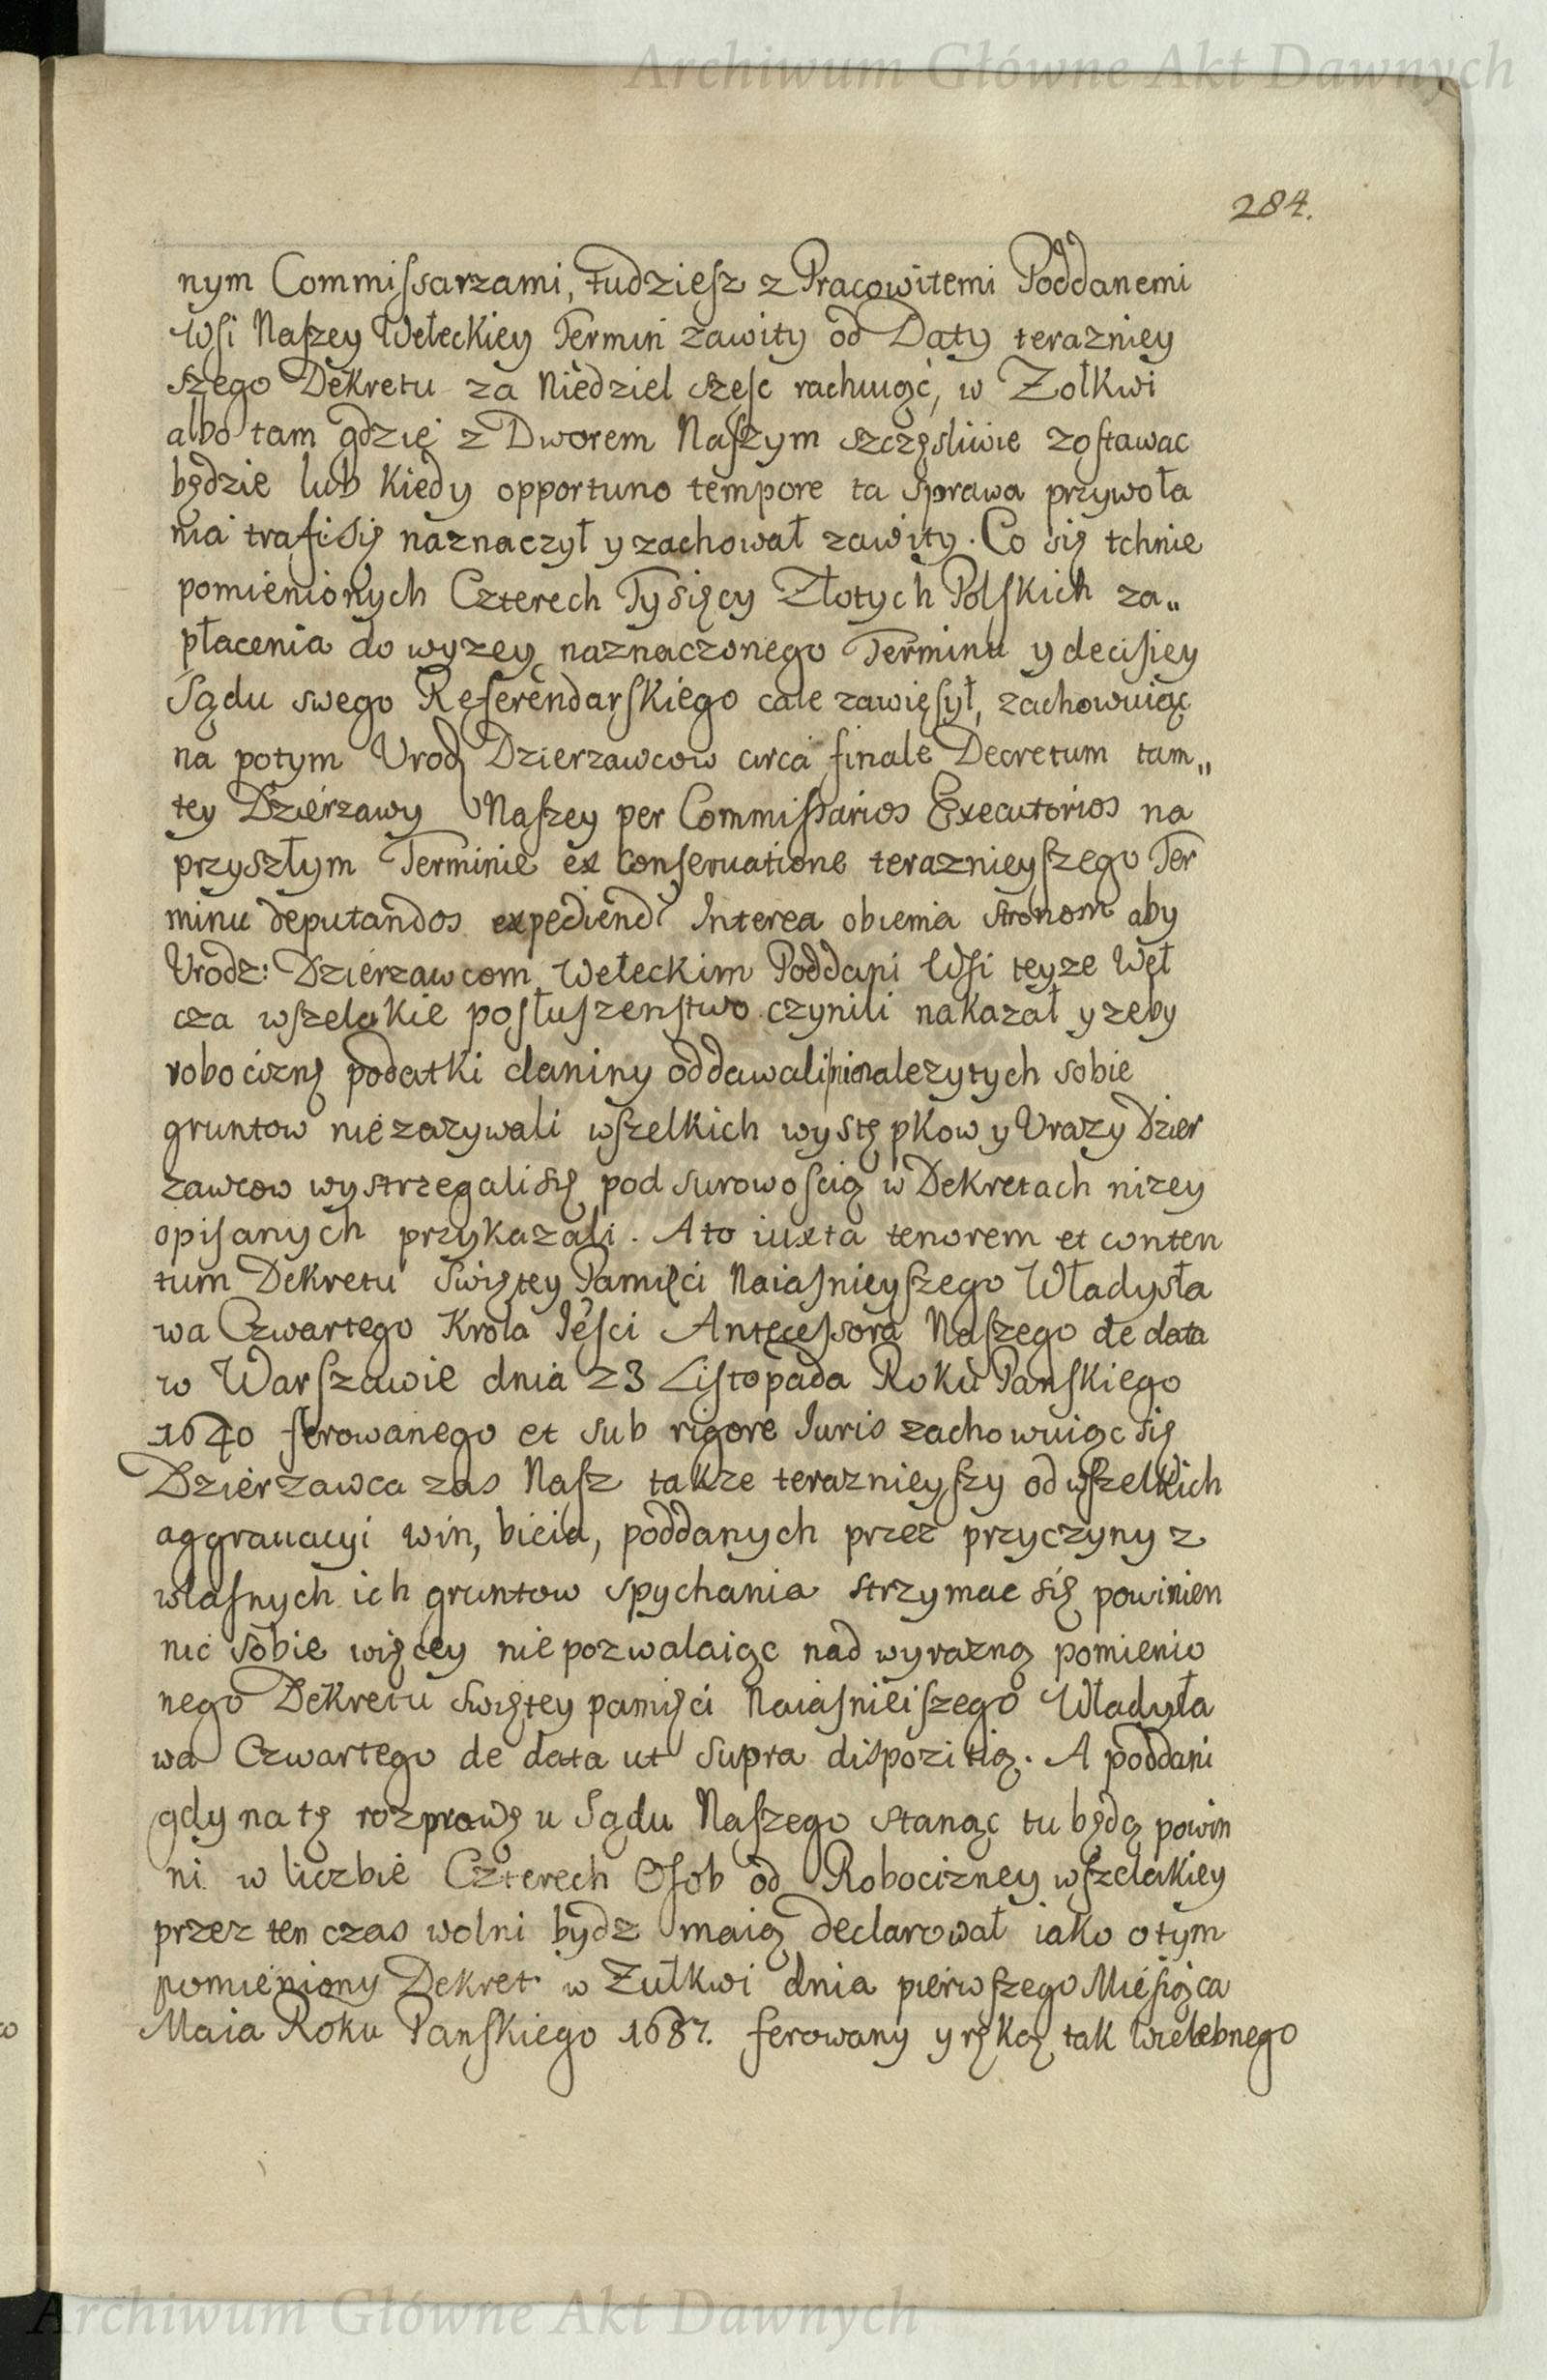 Archiwum Główne Akt Dawnych
284.
nym Commissarzami, tudziesz z Pracowitemi Poddanemi
Wsi Naszey Wełeckiey Termin zawity od Daty terazniey
szego Dekretu za Niedziel szesc rachuiąc, w Zołkwi
albo tam gdzie z Dworem Naszym szczęsliwie zostawac
będzie lub kiedy opportuno tempore ta sprawa przywoła
nia trafi się naznaczył y zachował zawity. Co się tchnie
pomienionych Czterech Tysięcy Złotych Polskich za„
płacenia do wyzey naznaczonego Terminu y decisiey
Sądu swego Referendarskiego cale zawięsył, zachowuiąc
na potym Urodz Dzierzawcow circa finale Decretum tam„
tey Dzierzawy Naszey per Commissarios Executorios na
przyszłym Terminie ex Conseruatione teraznieyszego Ter
minu deputandos expediend. Interea obiema stronom aby
Urodz: Dzierzawcom Wełeckim Poddani Wsi teyze Weł
cza wszelakie posłuszenstwo czynili nakazał y zeby
robociznę podatki daniny oddawali nienalezytych sobie
gruntow niezazywali wszelkich występkow y Urazy Dzier
zawcow wystrzegali się pod surowoscią w Dekretach nizey
opisanych przykazali. A to iuxta tenorem et conten
tum Dekretu Swiętey Pamięci Naiasnieyszego Władysła
wa Czwartego Krola Jeści Antecessora Naszego de data
w Warszawie dnia 23 Listopada Roku Panskiego
1640 ferowanego et sub rigore Iuris zachowuiąc się
Dzierzawca zas Nasz takze teraznieyszy od wszelkich
aggrauacyi win, bicia, poddanych przez przyczyny z
własnych ich gruntow spychania strzymac się powinien
nic sobie więcey niepozwalaiąc nad wyrazną pomienio
nego Dekretu swiętey pamięci Naiasnieiszego Władysła
wa Czwartego de data ut supra dispozitią. A poddani
gdy na tę rozprawę u Sądu Naszego stanąc tu będą powin
ni w liczbie Czterech Osob od Robocizney wszelakiey
przez ten czas wolni bydz maią declarował iako o tym
pomieniony Dekret w Zułkwi dnia pierwszego Miesiąca
Maia Roku Panskiego 1687. ferowany y ręką tak Wielebnego
Archiwum Główne Akt Dawnych